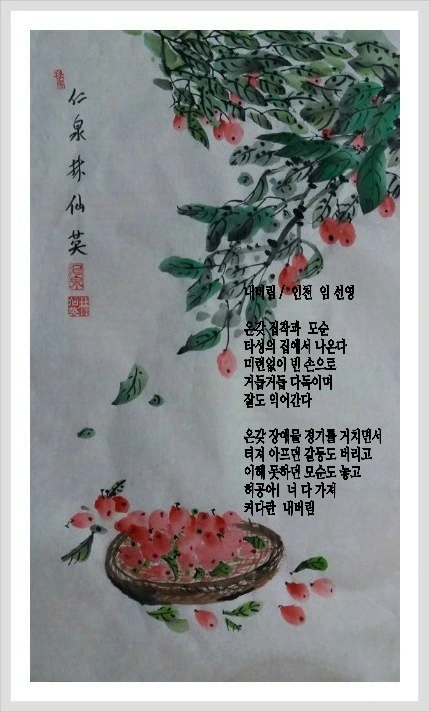 仁泉林仙英
내버림 / 인천 임 선영
온갖 집착과 모순
타성의 집에서 나온다
미련없이 빈 손으로
거듭거듭 다독이며
잘도 익어간다
온갖 장애물 경기를 거치면서
터져 아프던 갈등도 버리고
이해 못하던 모순도 놓고
허공아! 너 다 가져
커다란 내버림